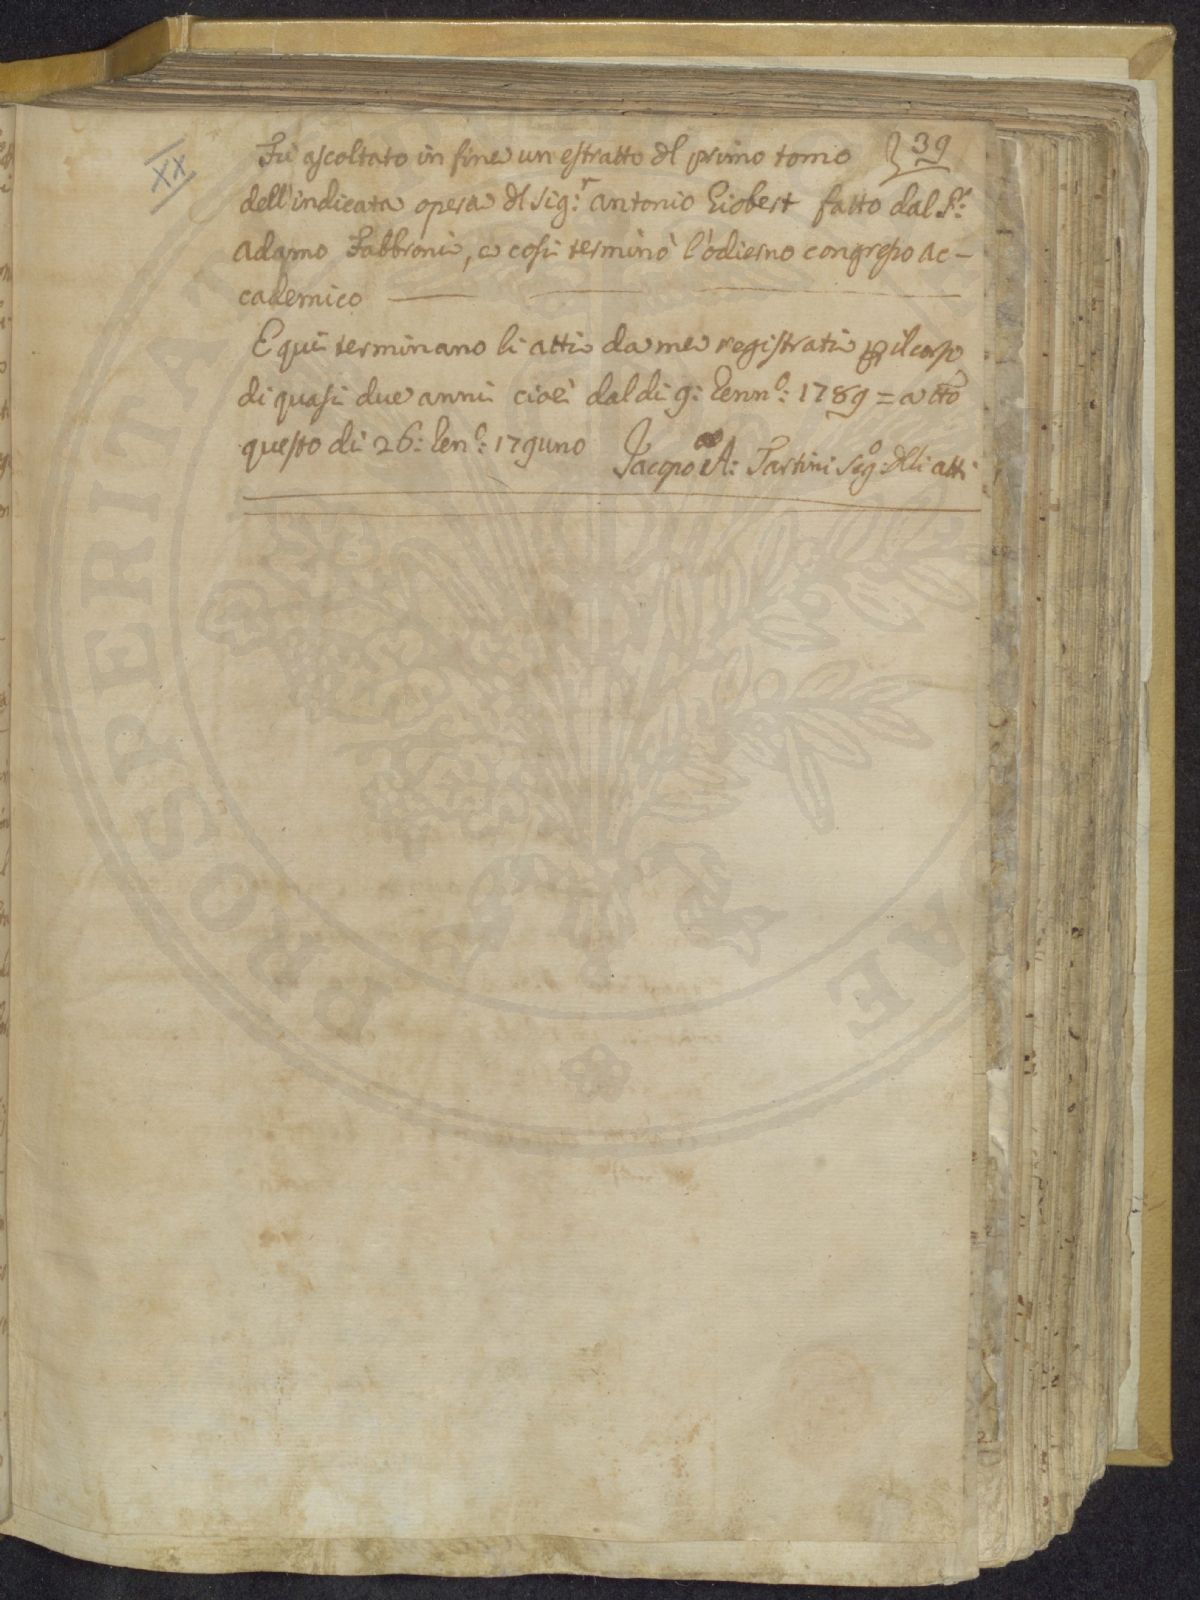 XX
39
Fù ascoltato in fine un estratto dl primo tomo
dell'indicata opera dl Sig:r Antonio Giobert fatto dal Sr:
Adamo Fabbroni, e così terminò l'odierno congresso ac-
cademico
E quì terminano li atti da me registrati p il corso
di quasi due anni cioè dal di 9: Genn.o: 1789 = a tto
questo di 26: Gen.o: 179uno
Jacopo A: Tartini Seg.o: dli atti
PROSPERITATI PUBLICAE